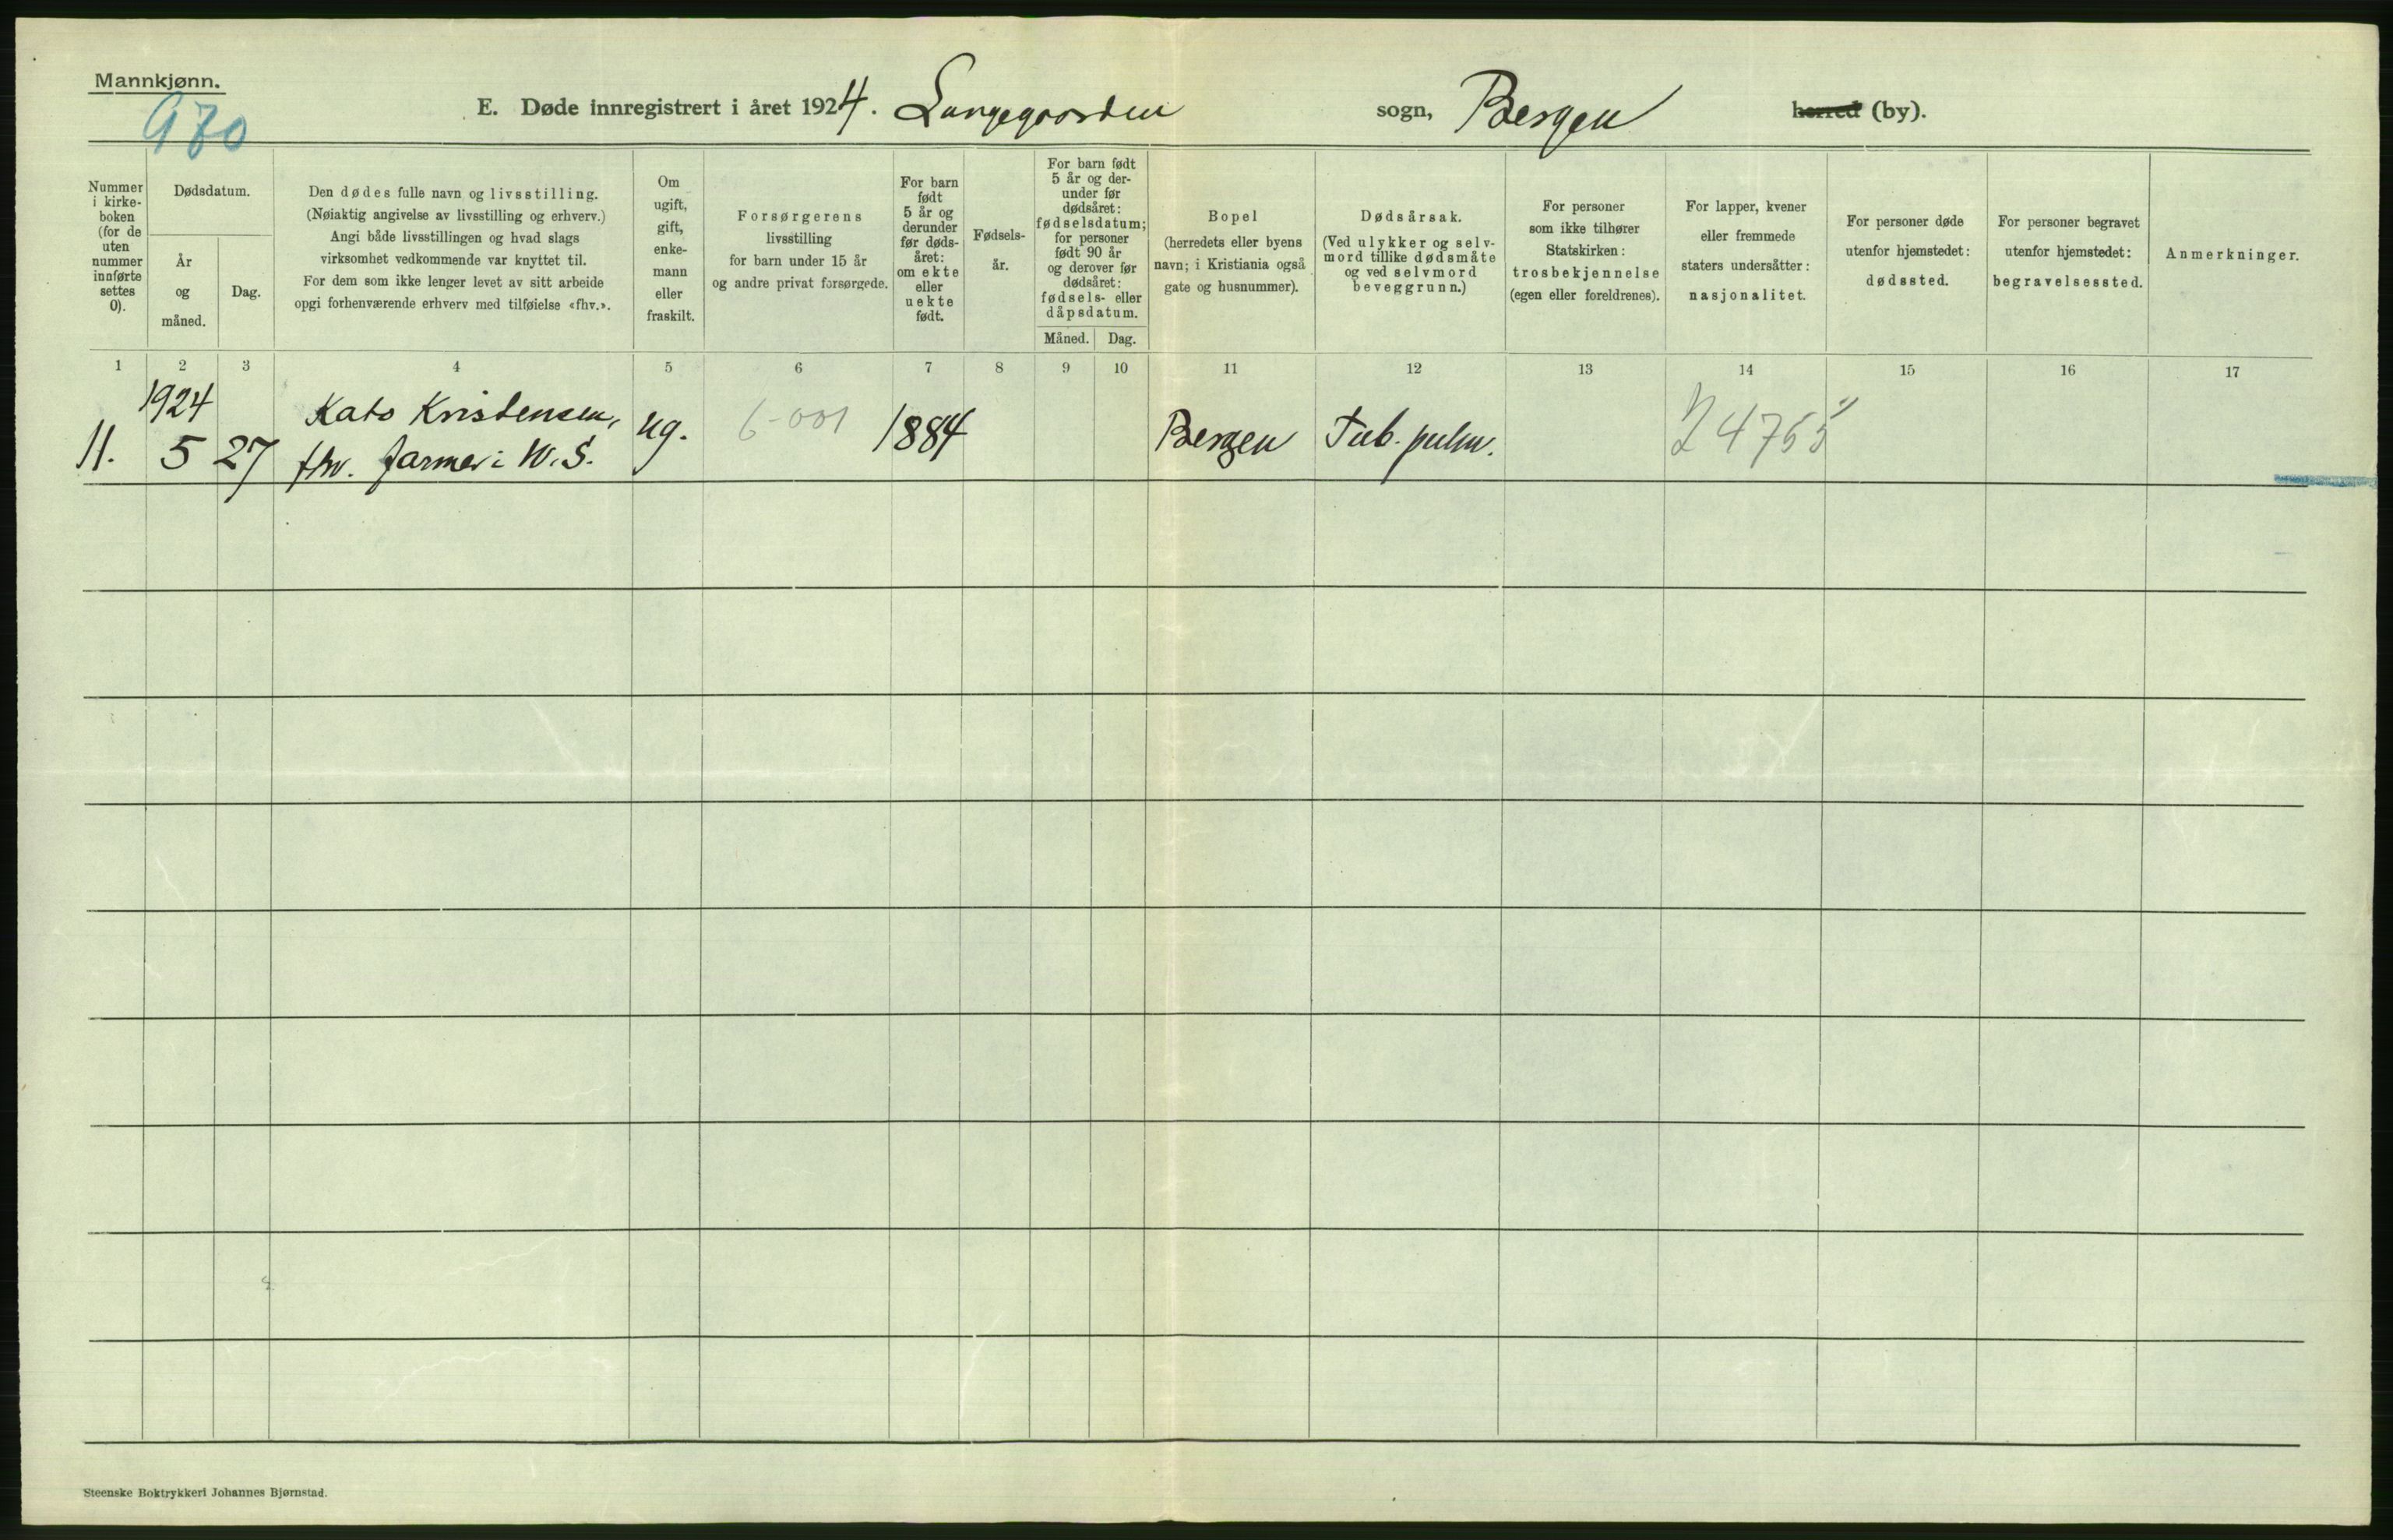 Mannkjønn.
970
E. Døde innregistrert i året 1924. Langegaarden sogn, Bergen herred (by).
Nummer
i kirke-
boken
(for de
uten
nummer
innførte
settes
0).
Dødsdatum.
År
og
måned.
Dag.
Den dødes fulle navn og livsstilling.
(Nøiaktig angivelse av livsstilling og erhverv.)
Angi både livsstillingen og hvad slags
virksomhet vedkommende var knyttet til.
For dem som ikke lenger levet av sitt arbeide
opgi forhenværende erhverv med tilføielse «fhv.».
Om
ugift,
gift,
enke-
mann
eller
fraskilt.
Forsørgerens
livsstilling
for barn under 15 år
og andre privat forsørgede.
For barn
født
5 år og
derunder
før døds-
året:
om ekte
eller
uekte
født.
Fødsels-
år.
For barn født
5 år og der-
under før
dødsåret:
fødselsdatum;
for personer
født 90 år
og derover før
dødsåret:
fødsels- eller
dåpsdatum.
Måned. Dag.
Bopel
(herredets eller byens
navn; i Kristiania også
gate og husnummer).
Dødsårsak.
(Ved ulykker og selv-
mord tillike dødsmåte
og ved selvmord
beveggrunn.)
For personer
som ikke tilhører
Statskirken:
trosbekjennelse
(egen eller foreldrenes).
For lapper, kvener
eller fremmede
staters undersåtter:
nasjonalitet.
For personer døde
utenfor hjemstedet:
dødssted.
For personer begravet
utenfor hjemstedet:
begravelsessted.
Anmerkninger.
1 2 3 4 5 6 7 8 9 10 11 12 13 14 15 16 17
1924 Kato Kristensen,
11. 5 27 fhv. farmer i W.S. ug. 6-001 1884 Bergen Tub. pulm. 24755
Steenske Boktrykkeri Johannes Bjørnstad.